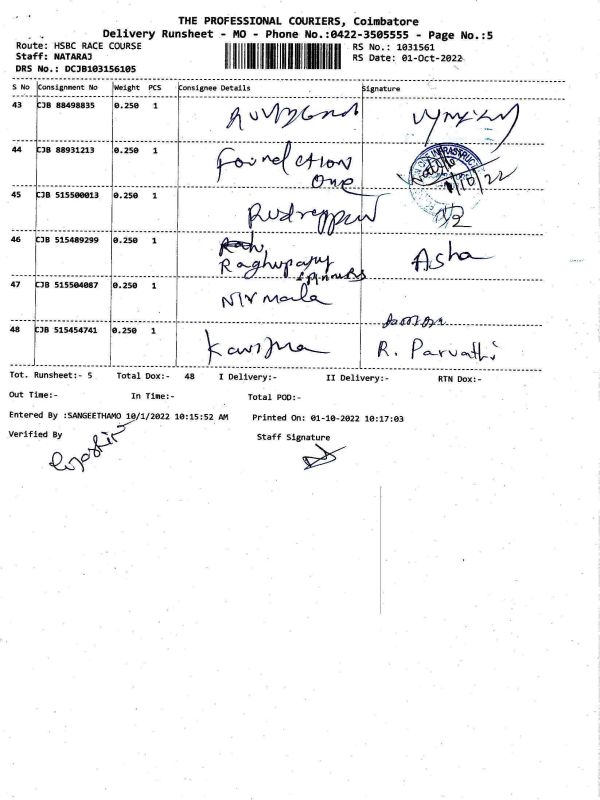 THE PROFESSIONAL COURIERS, Coimbatore
Delivery Runsheet - MO - Phone No.:0422-3505555 - Page No.:5
Route: HSBC RACE COURSE
RS No.: 1031561
Staff: NATARAJ
RS Date: 01-Oct-2022
DRS No.: DCJB103156105
S No Consignment No Weight PCS Consignee Details Signature
43 CJB 88498835 0.250 1
44 CJB 88931213 0.250 1 Foundation
One 1/10/22
45 CJB 515500013 0.250 1
46 CJB 515489299 0.250 1
Raghupathy Asha
Spinners
47 CJB 515504087 0.250 1 Nirmala
48 CJB 515454741 0.250 1 Karishma R. Parvathi
Tot. Runsheet:- 5 Total Dox:- 48 I Delivery:- II Delivery:- RTN Dox:-
Out Time:- In Time:- Total POD:-
Entered By :SANGEETHAMO 10/1/2022 10:15:52 AM Printed On: 01-10-2022 10:17:03
Verified By Staff Signature